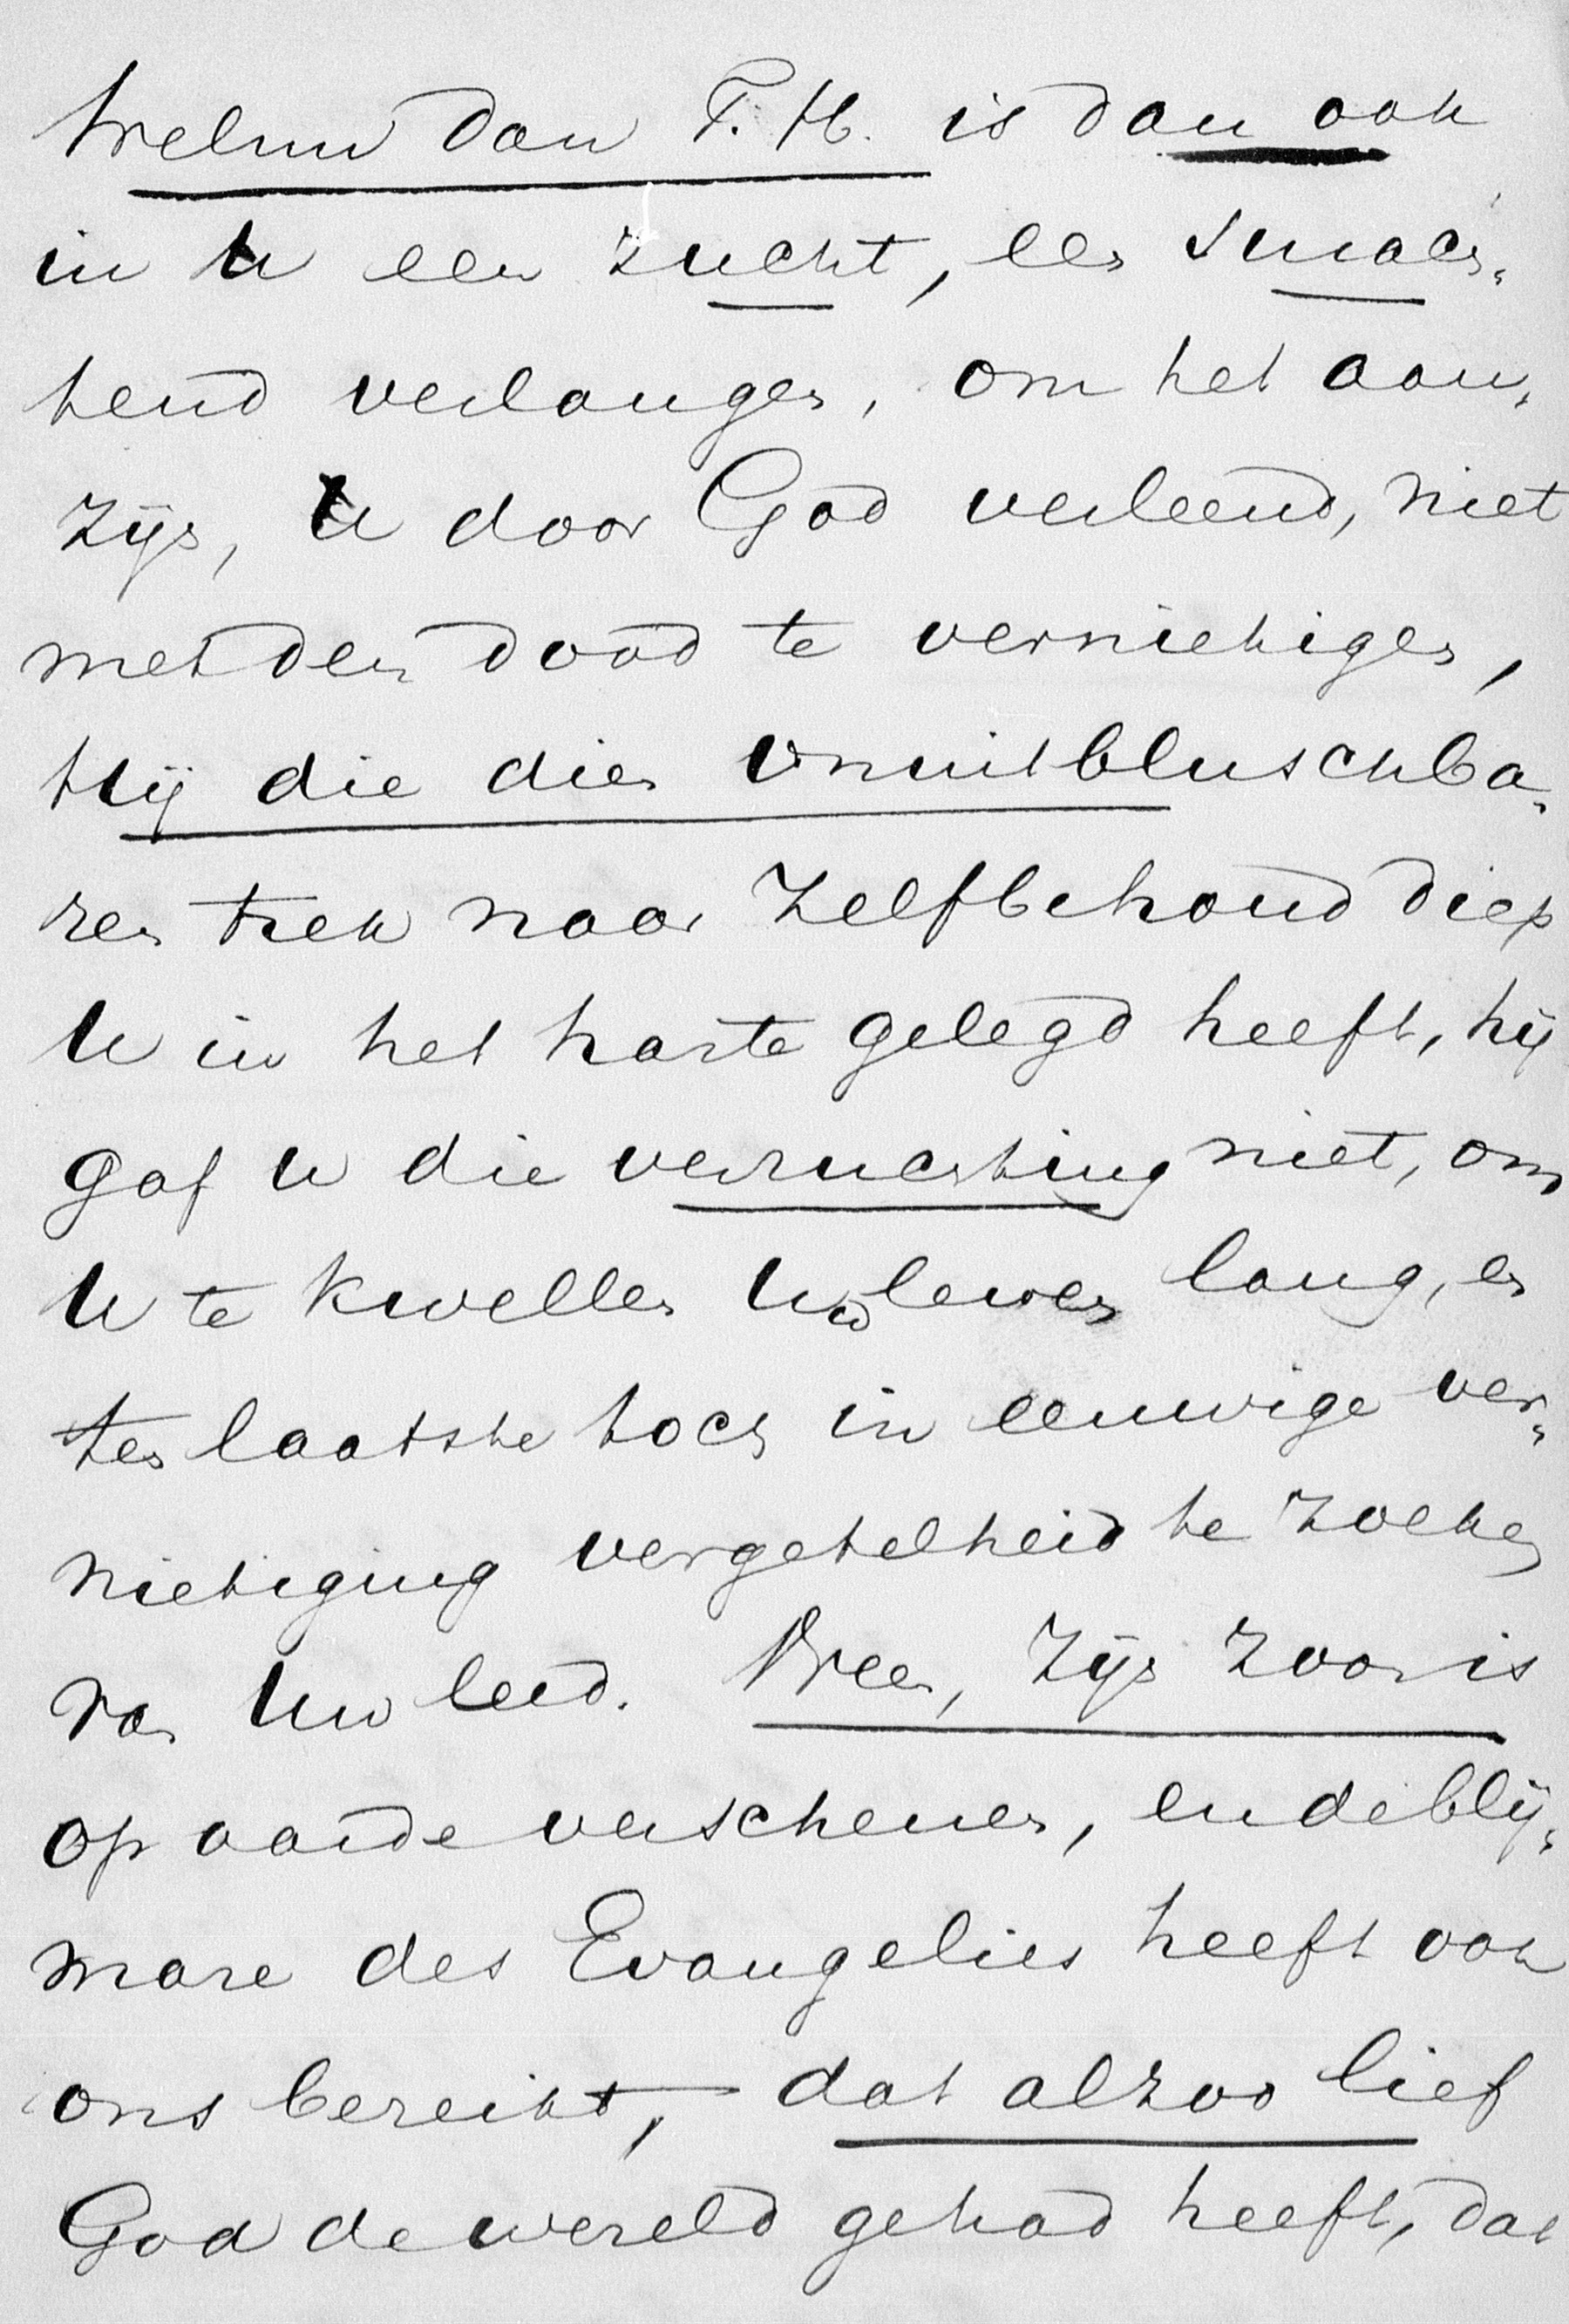 Welnu dan T. H. is dan ook
in U een zucht, een smach-
tend verlangen, om het aan-
zijn, U door God verleend, niet
met den dood te vernietigen,
Hij die dien onuitbluschba-
ren trek naar zelfbehoud diep
U in het harte gelegd heeft, hij
gaf u die verwachting niet, om
U te kwellen Uw leven lang, en
ten laatste toch in eeuwige ver-
nietiging vergetelheid te zoeken
van Uw leed. Neen, Zijn Zoon is
op aarde verschenen, en de blij-
mare des Evangelies heeft ook
ons bereikt, dat alzoo lief
God de wereld gehad heeft, dat